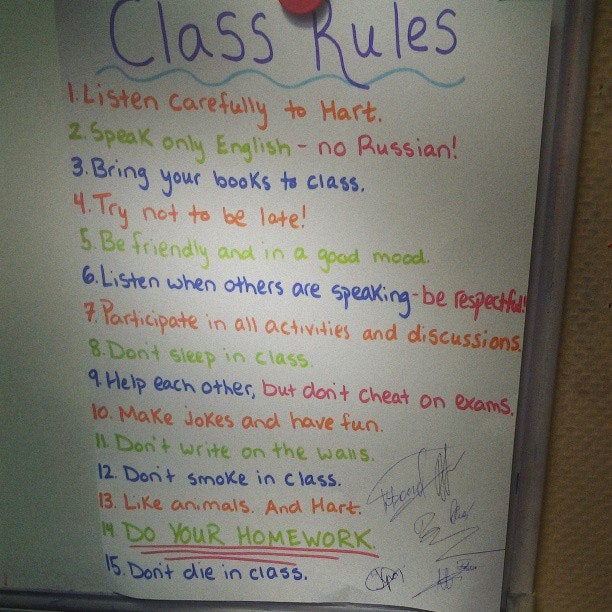 Class Rules
1. Listen carefully to Hart.
2. Speak only English - no Russian!
3. Bring your books to class.
4. Try not to be late!
5. Be friendly and in a good mood.
6. Listen when others are speaking - be respectful!
7. Participate in all activities and discussions.
8. Don't sleep in class.
9. Help each other, but don't cheat on exams.
10. Make jokes and have fun.
11. Don't write on the walls.
12. Don't smoke in class.
13. Like animals. And Hart.
14 DO YOUR HOMEWORK.
15. Don't die in class.